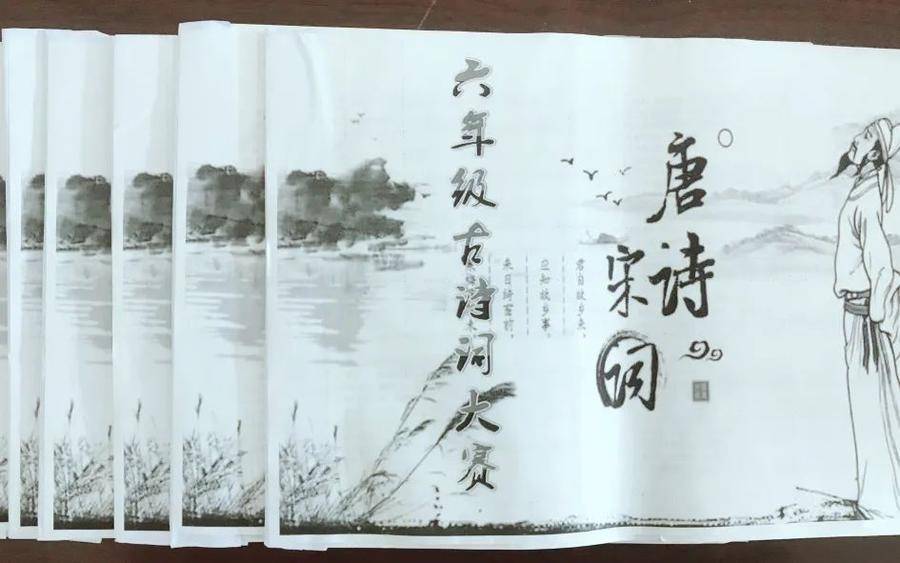 六年级古诗词大赛
唐诗
宋词
君自故乡来，
应知故乡事。
来日绮窗前，